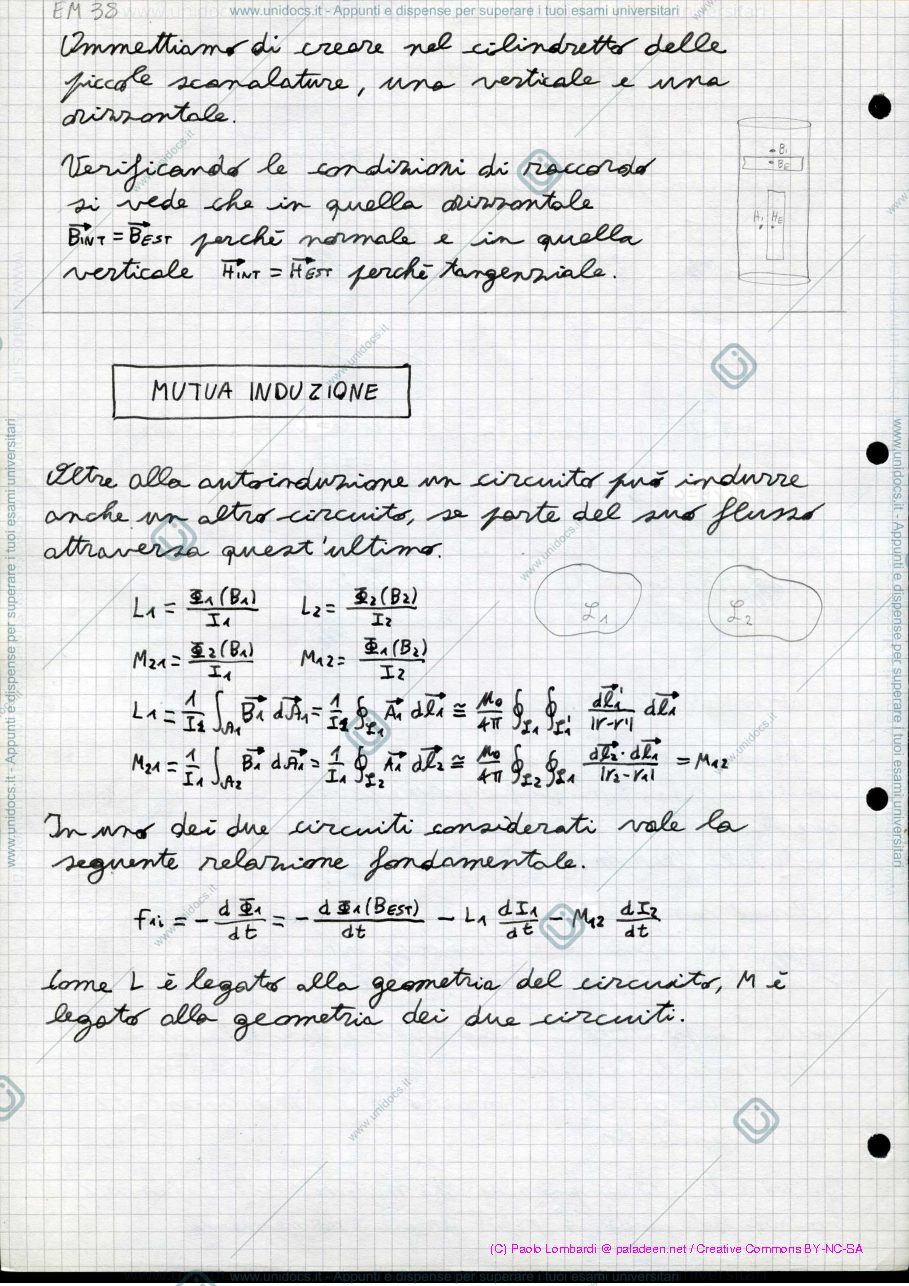 EM 38
www.unidocs.it - Appunti e dispense per superare i tuoi esami universitari
Ammettiamo di creare nel cilindretto delle
piccole scanalature, una verticale e una
orizzontale.
Verificando le condizioni di raccordo
si vede che in quella orizzontale
B⃗INT = B⃗EST perché normale e in quella
verticale H⃗INT = H⃗EST perché tangenziale.
BI
BE
HI HE
MUTUA INDUZIONE
Oltre alla autoinduzione un circuito può indurre
anche un altro circuito, se parte del suo flusso
attraversa quest'ultimo.
L1 = Φ1(B1)/I1 L2 = Φ2(B2)/I2
ℒ1 ℒ2
M21 = Φ2(B1)/I1 M12 = Φ1(B2)/I2
L1 = 1/I1 ∫A1 B⃗1 dA⃗1 = 1/I1 ∮ℒ1 A⃗1 dl⃗1 ≅ μ0/4π ∮ℒ1 ∮ℒ1' dl⃗1'/|r-r'| dl⃗1
M21 = 1/I1 ∫A2 B⃗1 dA⃗1 = 1/I1 ∮ℒ2 A⃗1 dl⃗2 ≅ μ0/4π ∮ℒ2 ∮ℒ1 dl⃗2·dl⃗1/|r2-r1| = M12
In uno dei due circuiti considerati vale la
seguente relazione fondamentale.
f1i = - dΦ1/dt = - dΦ1(BEST)/dt - L1 dI1/dt - M12 dI2/dt
Come L è legato alla geometria del circuito, M è
legato alla geometria dei due circuiti.
(C) Paolo Lombardi @ paladeen.net / Creative Commons BY-NC-SA
www.unidocs.it - Appunti e dispense per superare i tuoi esami universitari